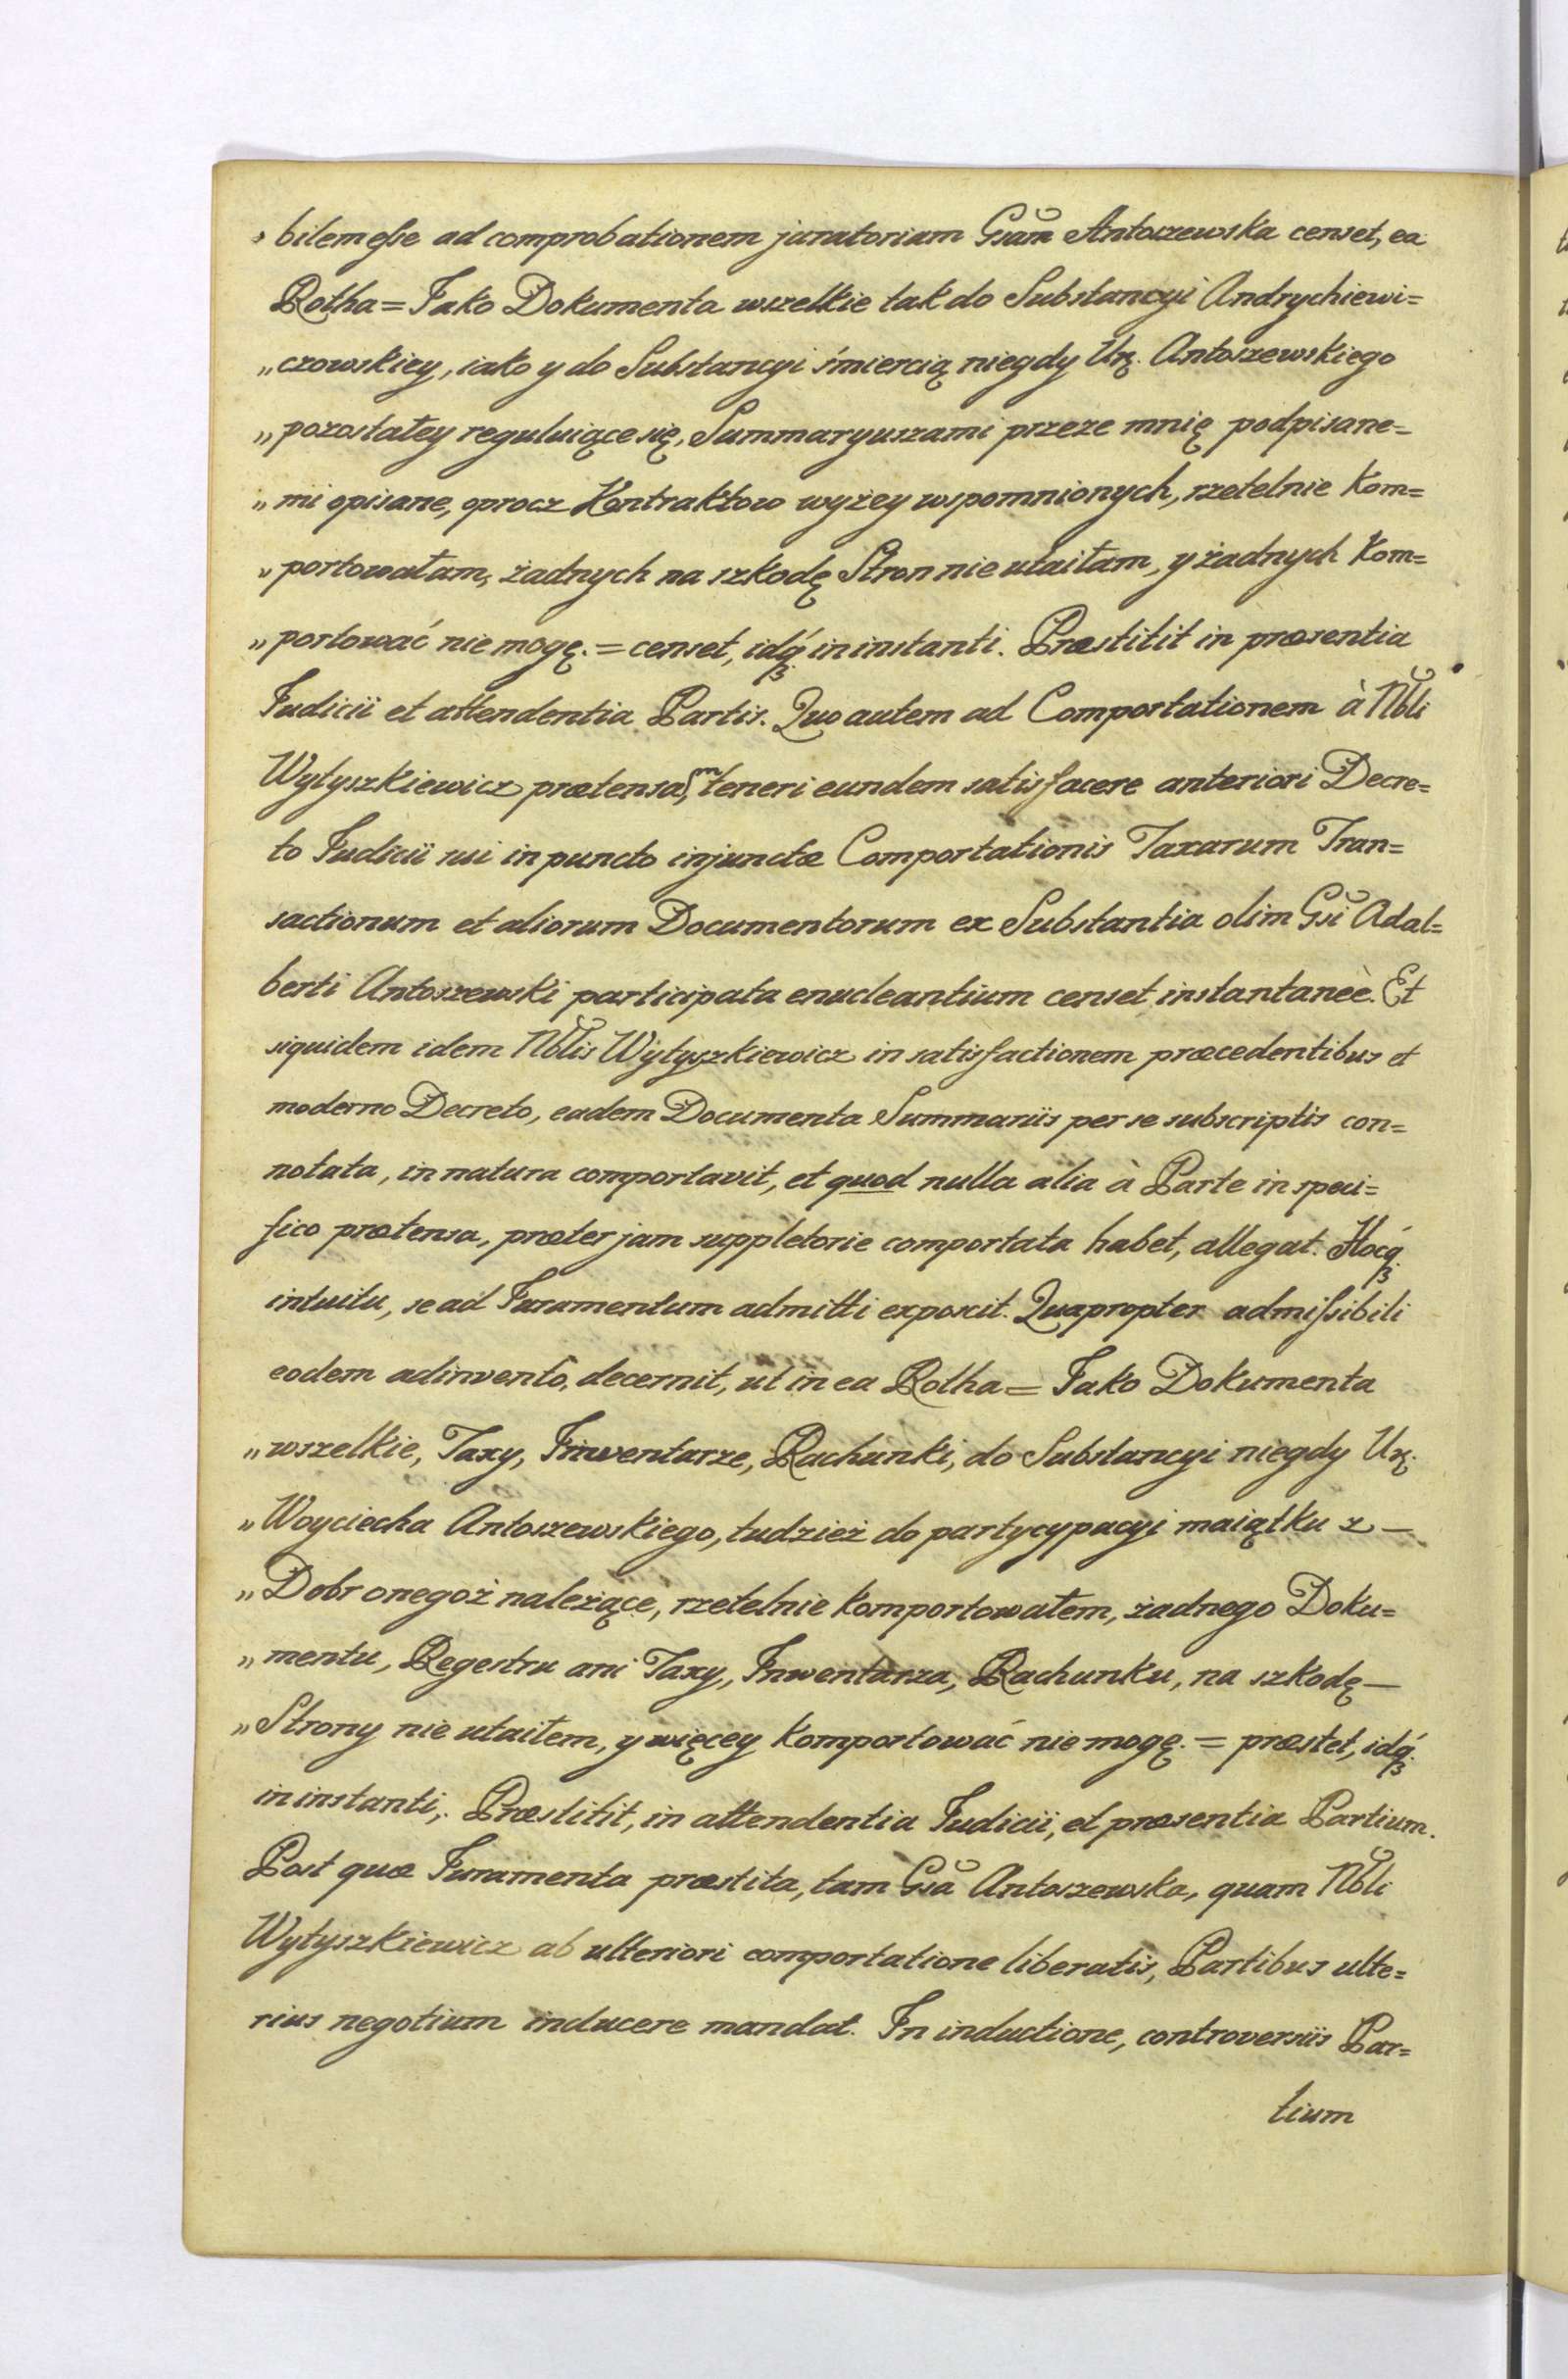 bilem eſse ad comprobationem juratoriam Gsam Antoszewska censet, ea
Rotha = Jako Dokumenta wszelkie tak do Substancyi Andrychiewi=
„czowskiey, iako y do Substancyi śmiercią niegdy Ur. Antoszewskiego
„pozostałey reguluiące się, Summaryuszami przeze mnię podpisane=
„mi opisane, oprocz Kontraktow wyżey wspomnionych, rzetelnie Kom=
„portowałam, żadnych na szkodę Stron nie utaiłam, y żadnych Kom=
„portować nie mogę. = censet, idq́ꝫ in instanti. Præstitit in præsentia
Judicii et attendentia Partis. Quo autem ad Comportationem à Nbli
Wytyszkiewicz prætensam, teneri eundem satisfacere anteriori Decre=
to Judicii sui in puncto injunctæ Comportationis Taxarum Tran=
sactionum et aliorum Documentorum ex Substantia olim Gsi Adal=
berti Antoszewski participata enucleantium censet instantaneè. Et
siquidem idem Nblis Wytyszkiewicz in satisfactionem præcedentibus et
moderno Decreto, eadem Documenta Summariis per se subscriptis con=
notata, in natura comportavit, et quod nulla alia à Parte in speci=
fico prætensa, præter jam suppletorie comportata habet, allegat. Hocq́ꝫ
intuitu, se ad Juramentum admitti exposcit. Quapropter admiſsibili
eodem adinvento, decernit, ut in ea Rotha = Jako Dokumenta
„wszelkie, Taxy, Inwentarze, Rachunki, do Substancyi niegdy Ur.
„Woyciecha Antoszewskiego, tudzież do partycypacyi maiątku z —
„Dobr onegoż należące, rzetelnie komportowałem, żadnego Doku=
„mentu, Regestru ani Taxy, Inwentarza, Rachunku, na szkodę —
„Strony nie utaiłem, y więcey komportować nie mogę. = præstet, idq́ꝫ
in instanti, Præstitit, in attendentia Judicii, et præsentia Partium.
Post quæ Juramenta præstita, tam Gsa Antoszewska, quam Nbli
Wytyszkiewicz ab ulteriori comportatione liberatis, Partibus ulte=
rius negotium inducere mandat. In inductione, controversiis Par=
tium